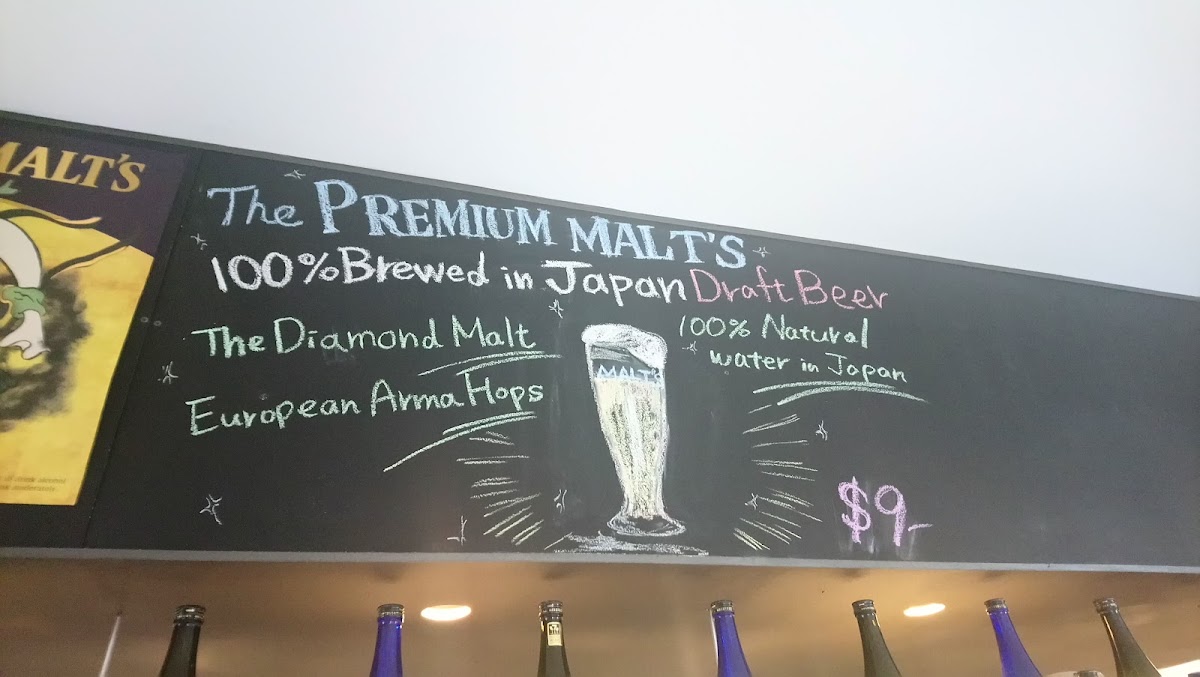 MALT'S
The PREMIUM MALT'S
100% Brewed in Japan Draft Beer
The Diamond Malt
European Arma Hops
MALT'S
100% Natural
water in Japan
$9-